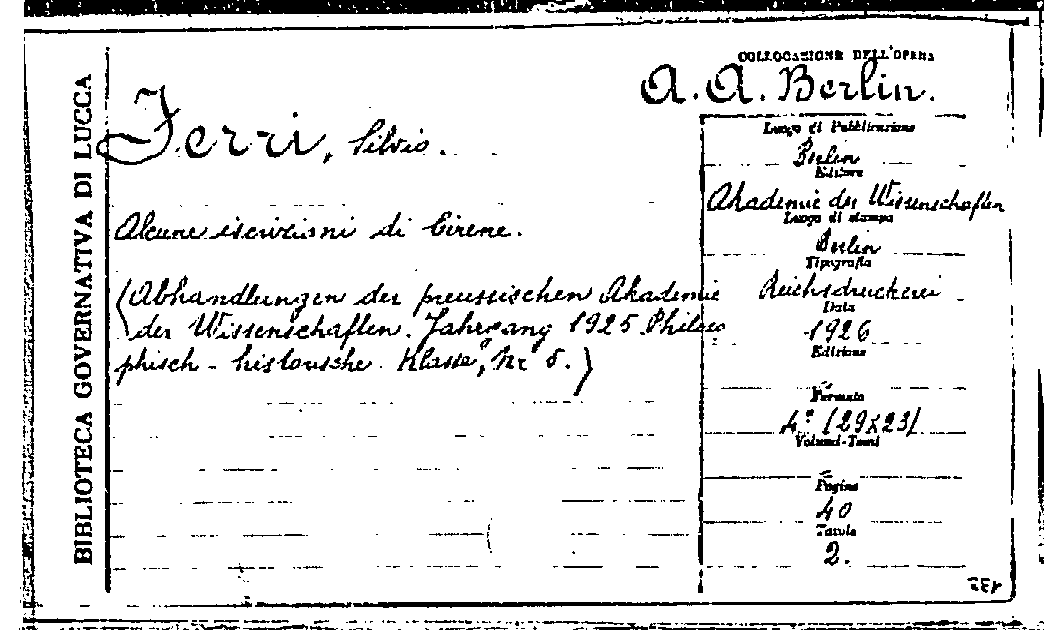 BIBLIOTECA GOVERNATIVA DI LUCCA
COLLOCAZIONE DELL'OPERA
A. A. Berlin.
Ferri, Silvio.
Alcune iscrizioni di Cirene.
(Abhandlungen der preussischen Akademie
der Wissenschaften. Jahrgang 1925 Philoso
phisch-historische Klasse, Nr 5.)
Luogo di Pubblicazione
Berlin
Editore
Akademie der Wissenschaften
Luogo di stampa
Berlin
Tipografia
Reichsdruckerei
Data
1926
Edizione
Formato
4° (29x23)
Volumi-Tomi
Pagine
40
Tavole
2.